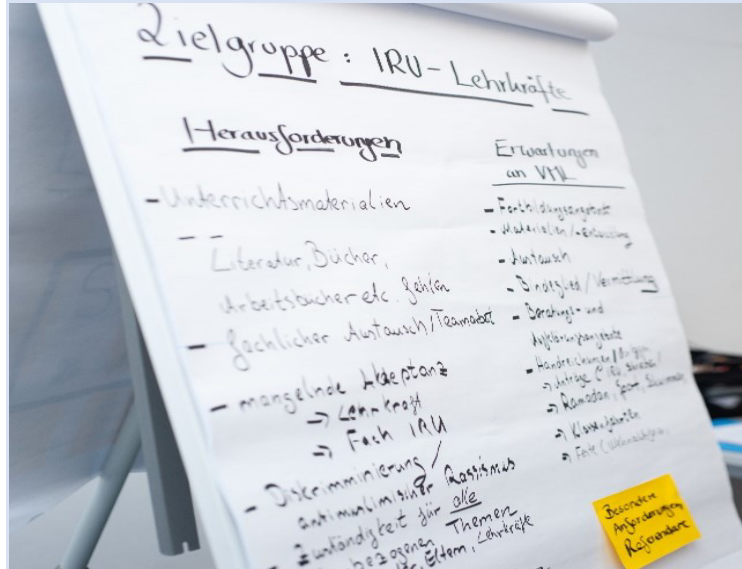 Zielgruppe : IRU - Lehrkräfte
Herausforderungen
- Unterrichtsmaterialien
- -
Literatur, Bücher,
Arbeitsbücher etc. fehlen
- fachlicher Austausch/Teamarbeit
- mangelnde Akzeptanz
→ Lehrkraft
→ Fach IRU
- Diskrimminierung/
antimuslimischer Rassismus
- Zuständigkeit für alle
bezogenen Themen
Eltern, Lehrkräfte
Erwartungen
an VML
- Fortbildungsangebote
- Materialien/-entwicklung
- Austausch
- Bindeglied/Vermittlung
- Beratungs- und
Aufklärungsangebote
- Handreichungen/
→ Anträge
→ Ramadan, Sport, Schwimmen,
→ Klassenfahrten
→ Feste
Besondere
Anforderungen
Referendare